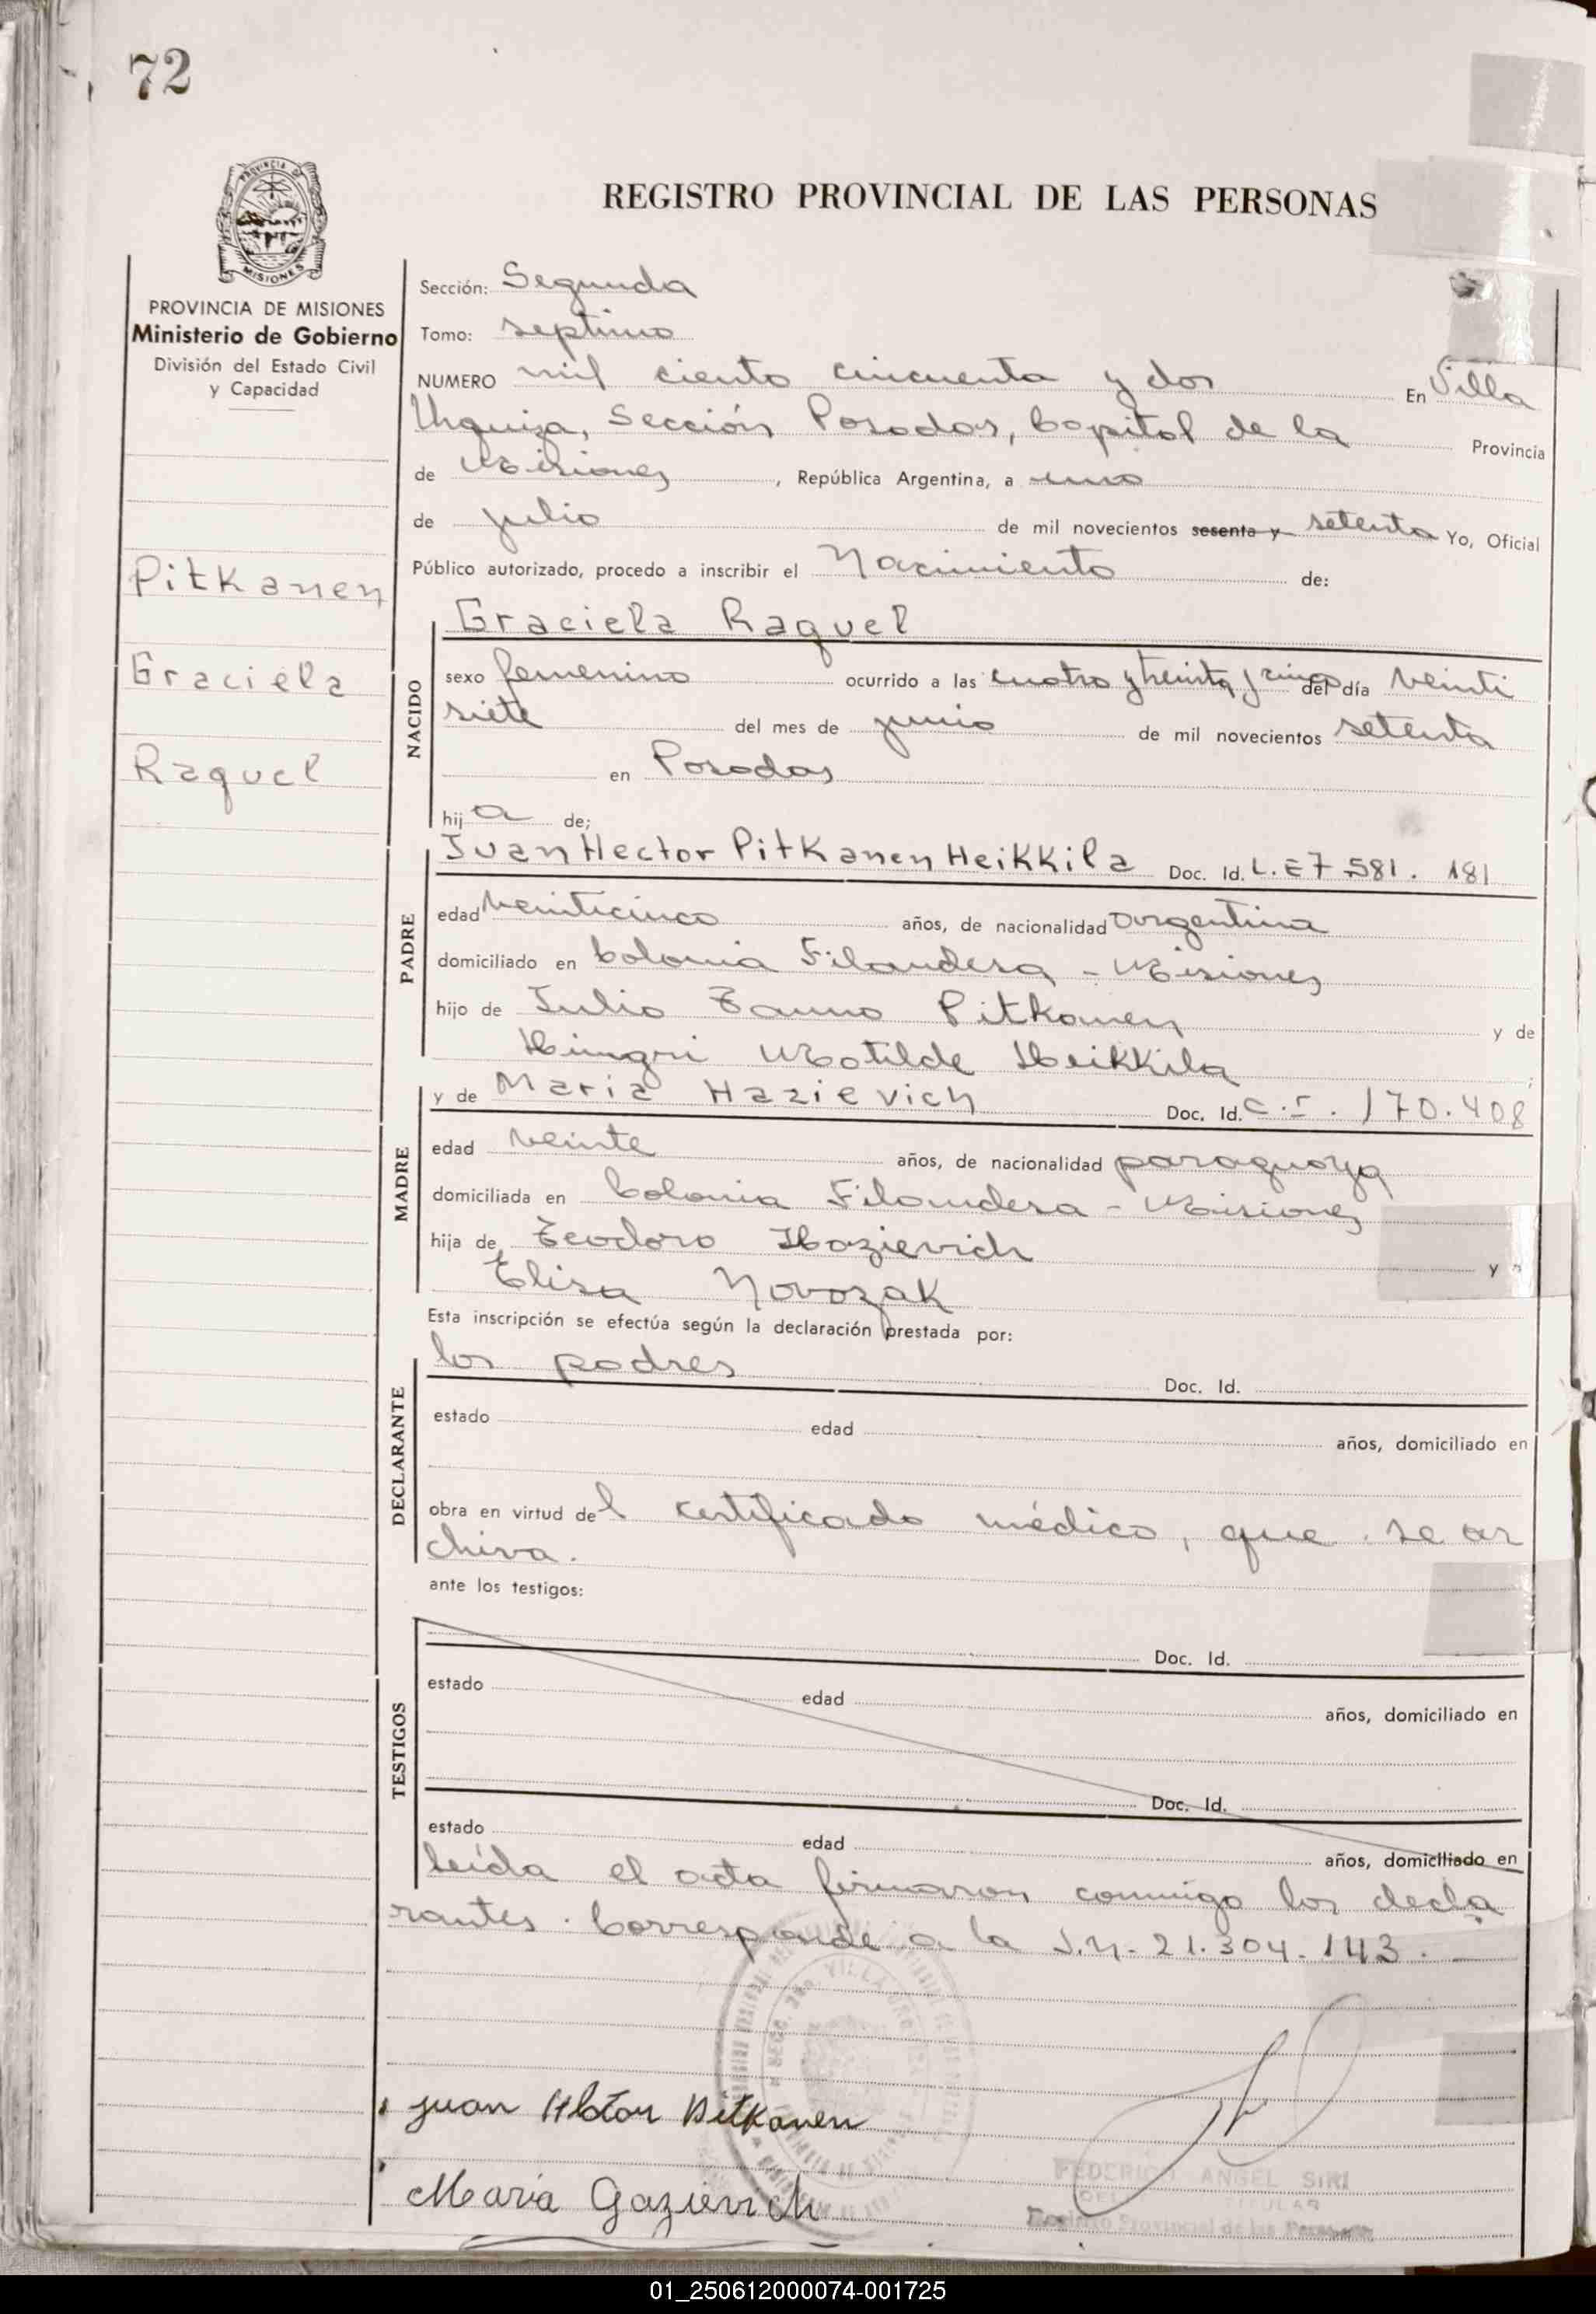 72
REGISTRO PROVINCIAL DE LAS PERSONAS
PROVINCIA DE
MISIONES
PROVINCIA DE MISIONES
Ministerio de Gobierno
División del Estado Civil
y Capacidad
Pitkanen
Graciela
Raquel
Sección: Segunda
Tomo: septimo
NUMERO mil ciento cincuenta y dos En Villa
Urquiza, Sección Posadas, Capital de la Provincia
de Misiones, República Argentina, a uno
de julio de mil novecientos sesenta y setenta Yo, Oficial
Público autorizado, procedo a inscribir el Nacimiento de:
NACIDO
Graciela Raquel
sexo femenino ocurrido a las cuatro y treinta y cinco del día veinti
siete del mes de junio de mil novecientos setenta
en Posadas
hija de;
PADRE
Juan Hector Pitkanen Heikkila Doc. Id. L.E 7.581.181
edad veinticinco años, de nacionalidad argentina
domiciliado en Colonia Filandesa - Misiones
hijo de Julio Tauno Pitkanen y de
Hingri Matilde Heikkila
MADRE
y de Maria Hazievich Doc. Id. C.I. 170.408
edad veinte años, de nacionalidad paraguaya
domiciliada en Colonia Filandesa - Misiones
hija de Teodoro Hazievich y
Elisa Novozak
Esta inscripción se efectúa según la declaración prestada por:
DECLARANTE
los padres Doc. Id.
estado edad años, domiciliado en
obra en virtud del certificado médico, que se ar
chiva.
ante los testigos:
TESTIGOS
Doc. Id.
estado edad años, domiciliado en
Doc. Id.
estado edad años, domiciliado en
leída el acta firmaron conmigo los decla
rantes. Corresponde a la I.N. 21.304.143.
Juan Hector Pitkanen
Maria Gazievich
FEDERICO ANGEL SIRI
TITULAR
Registro Provincial de las Personas
01_250612000074-001725